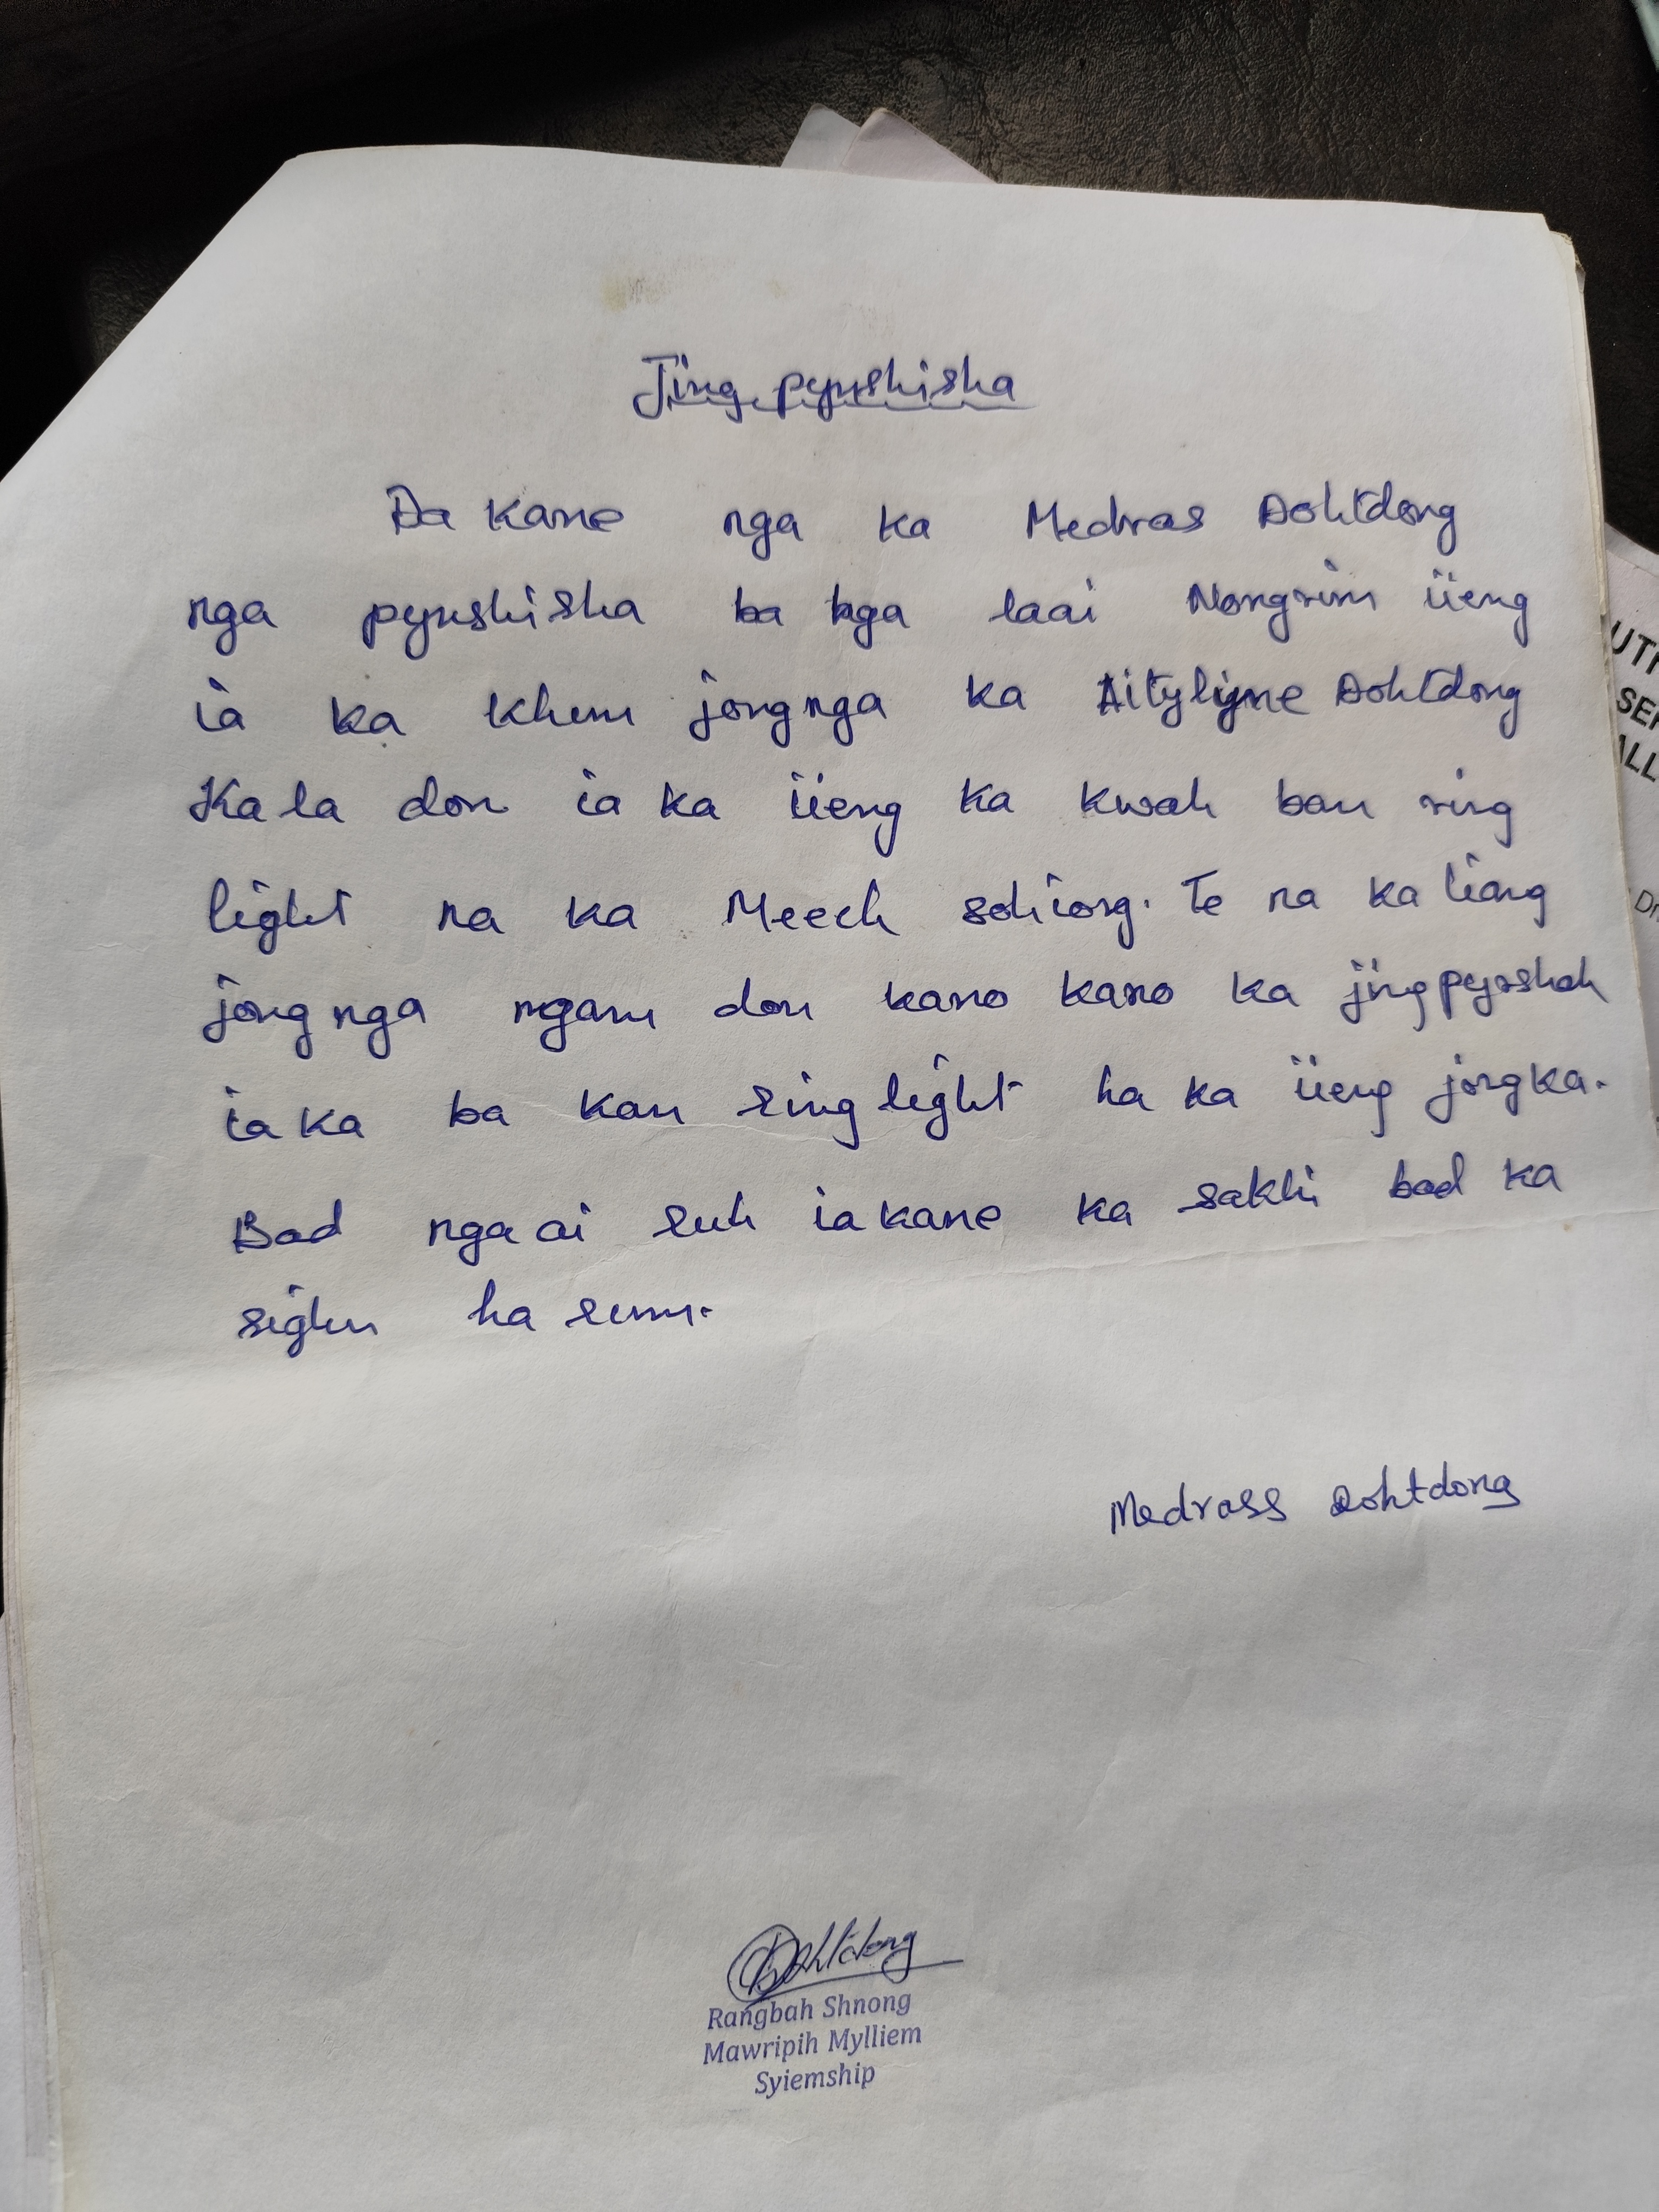 Jingpynshisha
Da Kane nga ka Medras Dohtdong
nga pynshisha ba nga laai Nongrim iieng
ia ka khun jong nga ka Aitylyne Dohtdong
Ka la don ia ka iieng ka kwah ban ring
light na ka Meech sohiong. Te na ka liang
jong nga ngam don kano kano ka jingpynshah
ia ka ba kan ring light ha ka iieng jongka.
Bad nga ai ruh ia kane ka sakhi bad ka
sighn ha rum.
Medrass Dohtdong
Dohtdong
Rangbah Shnong
Mawripih Mylliem
Syiemship
UTH
SER
ALL
Dr